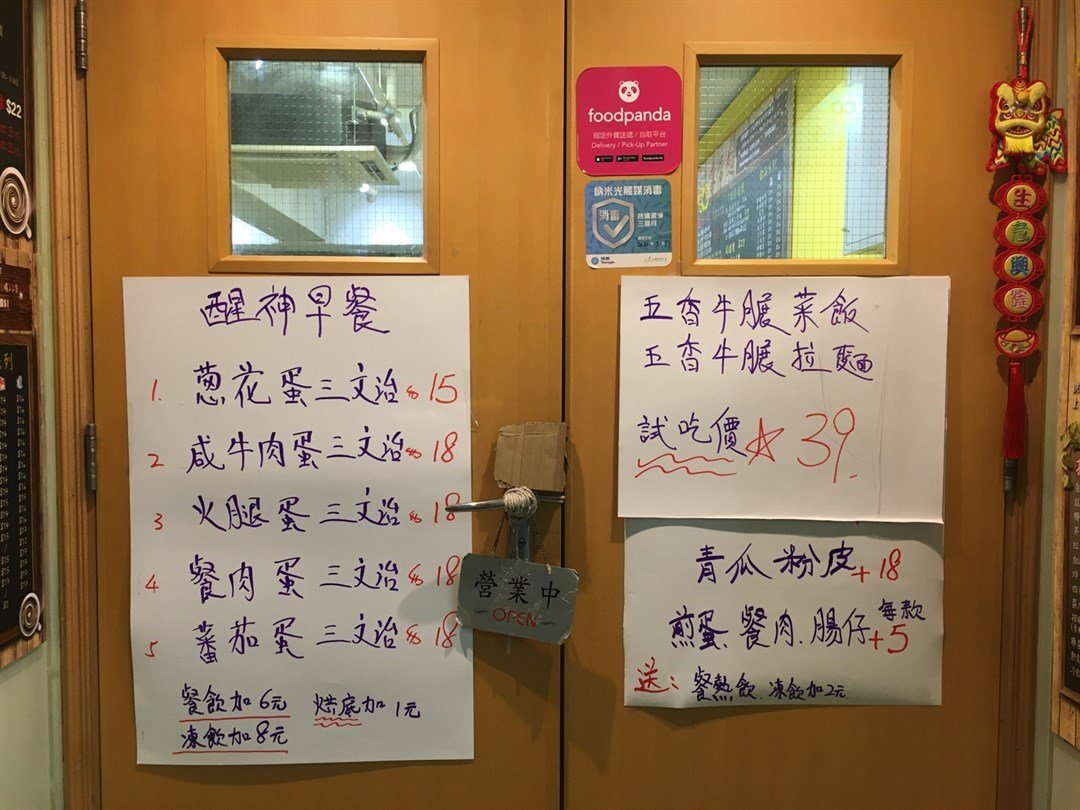 $22
foodpanda
指定外賣速遞 / 自取平台
Delivery / Pick-Up Partner
納米光觸媒消毒
消毒
持續潔淨
三個月
生
意
興
隆
醒神早餐
1. 蔥花蛋三文治 $15
2 咸牛肉蛋三文治 $18
3 火腿蛋三文治 $18
4 餐肉蛋三文治 $18
5 蕃茄蛋三文治 $18
餐飲加6元 烘底加1元
凍飲加8元
營業中
OPEN
五香牛𦟌菜飯
五香牛𦟌拉麵
試吃價☆39.
青瓜粉皮+18
煎蛋、餐肉、腸仔 每款+5
送：餐熱飲、凍飲加2元